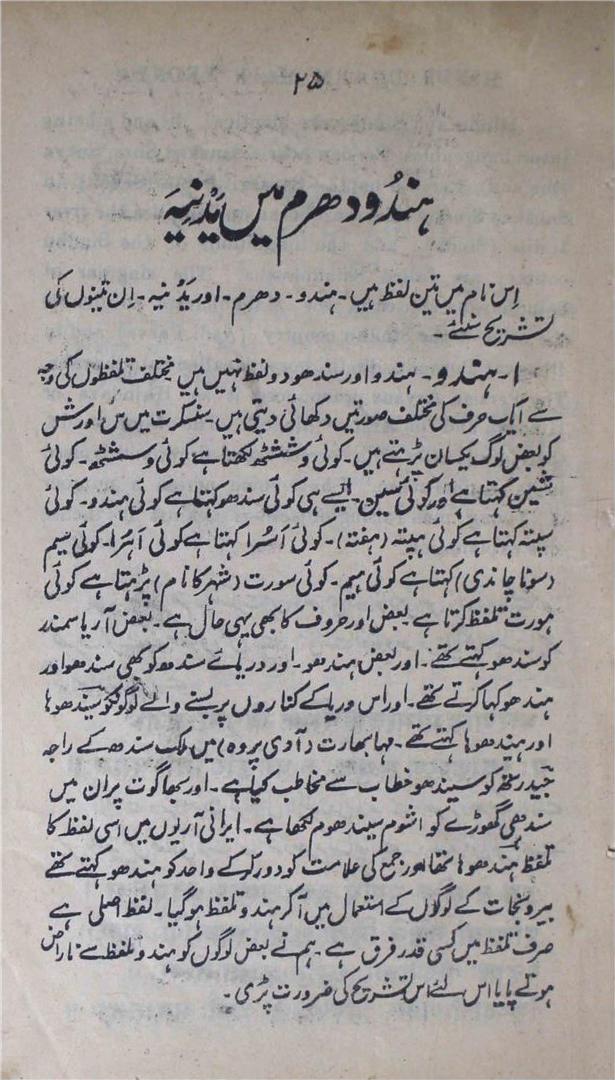 ۲۵
ہندُو دھرم میں یَدْنیَہ
اِس نام میں تین لفظ ہیں۔ ہندو۔ دھرم۔ اور یَدْنیہ۔ اِن تینوں کی
تشریح سُنئے۔
۱۔ ہندو۔ ہندو اور سندھو دو لفظ نہیں ہیں مختلف تلفظوں کی وجہ
سے ایک حرف کی مختلف صورتیں دکھائی دیتی ہیں۔ سنسکرت میں س اور ش
کو بعض لوگ یکساں پڑہتے ہیں۔ کوئی وششٹھ لکھتا ہے کوئی وسشٹھ۔ کوئی
شین کہتا ہے اور کوئی سین۔ ایسے ہی کوئی سندھو کہتا ہے کوئی ہندو۔ کوئی
سپتہ کہتا ہے کوئی ہپتہ (ہفتہ)۔ کوئی اَسُرا کہتا ہے کوئی اَہُرا۔ کوئی سیم
(سونا چاندی) کہتا ہے کوئی ہیم۔ کوئی سورت (شہر کا نام) پڑہتا ہے کوئی
ہورت تلفظ کرتا ہے بعض اور حروف کا بھی یہی حال ہے۔ بعض آریا سمندر
کو سندھو کہتے تھے۔ اور بعض ہندھو۔ اور دریائے سندھ کو بھی سندھو اور
ہندھو کہا کرتے تھے۔ اور اس دریا کے کناروں پر بسنے والے لوگوں کو سیندھوا
اور ہیندھوا کہتے تھے۔ مہابھارت (آدی پروہ) میں ملک سندھ کے راجہ
جیدرتھ کو سیندھو خطاب سے مخاطب کیا ہے۔ اور بھاگوت پران میں
سندھی گھوڑے کو اشوم سیندھوم لکھا ہے۔ ایرانی آریوں میں اسی لفظ کا
تلفظ ہندھوا تھا اور جمع کی علامت کو دور کرکے واحد کو ہندھو کہتے تھے
بیرونجات کے لوگوں کے استعمال میں آکر ہندو تلفظ ہوگیا۔ لفظ اصلی ہے
صرف تلفظ میں کسی قدر فرق ہے۔ ہم نے بعض لوگوں کو ہندو تلفظ سے ناراض
ہوتے پایا اس لئے اس تشریح کی ضرورت پڑی۔